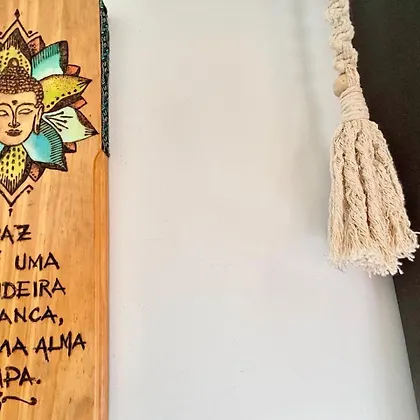 AZ
UMA
DEIRA
ANCA,
MA ALMA
PA.